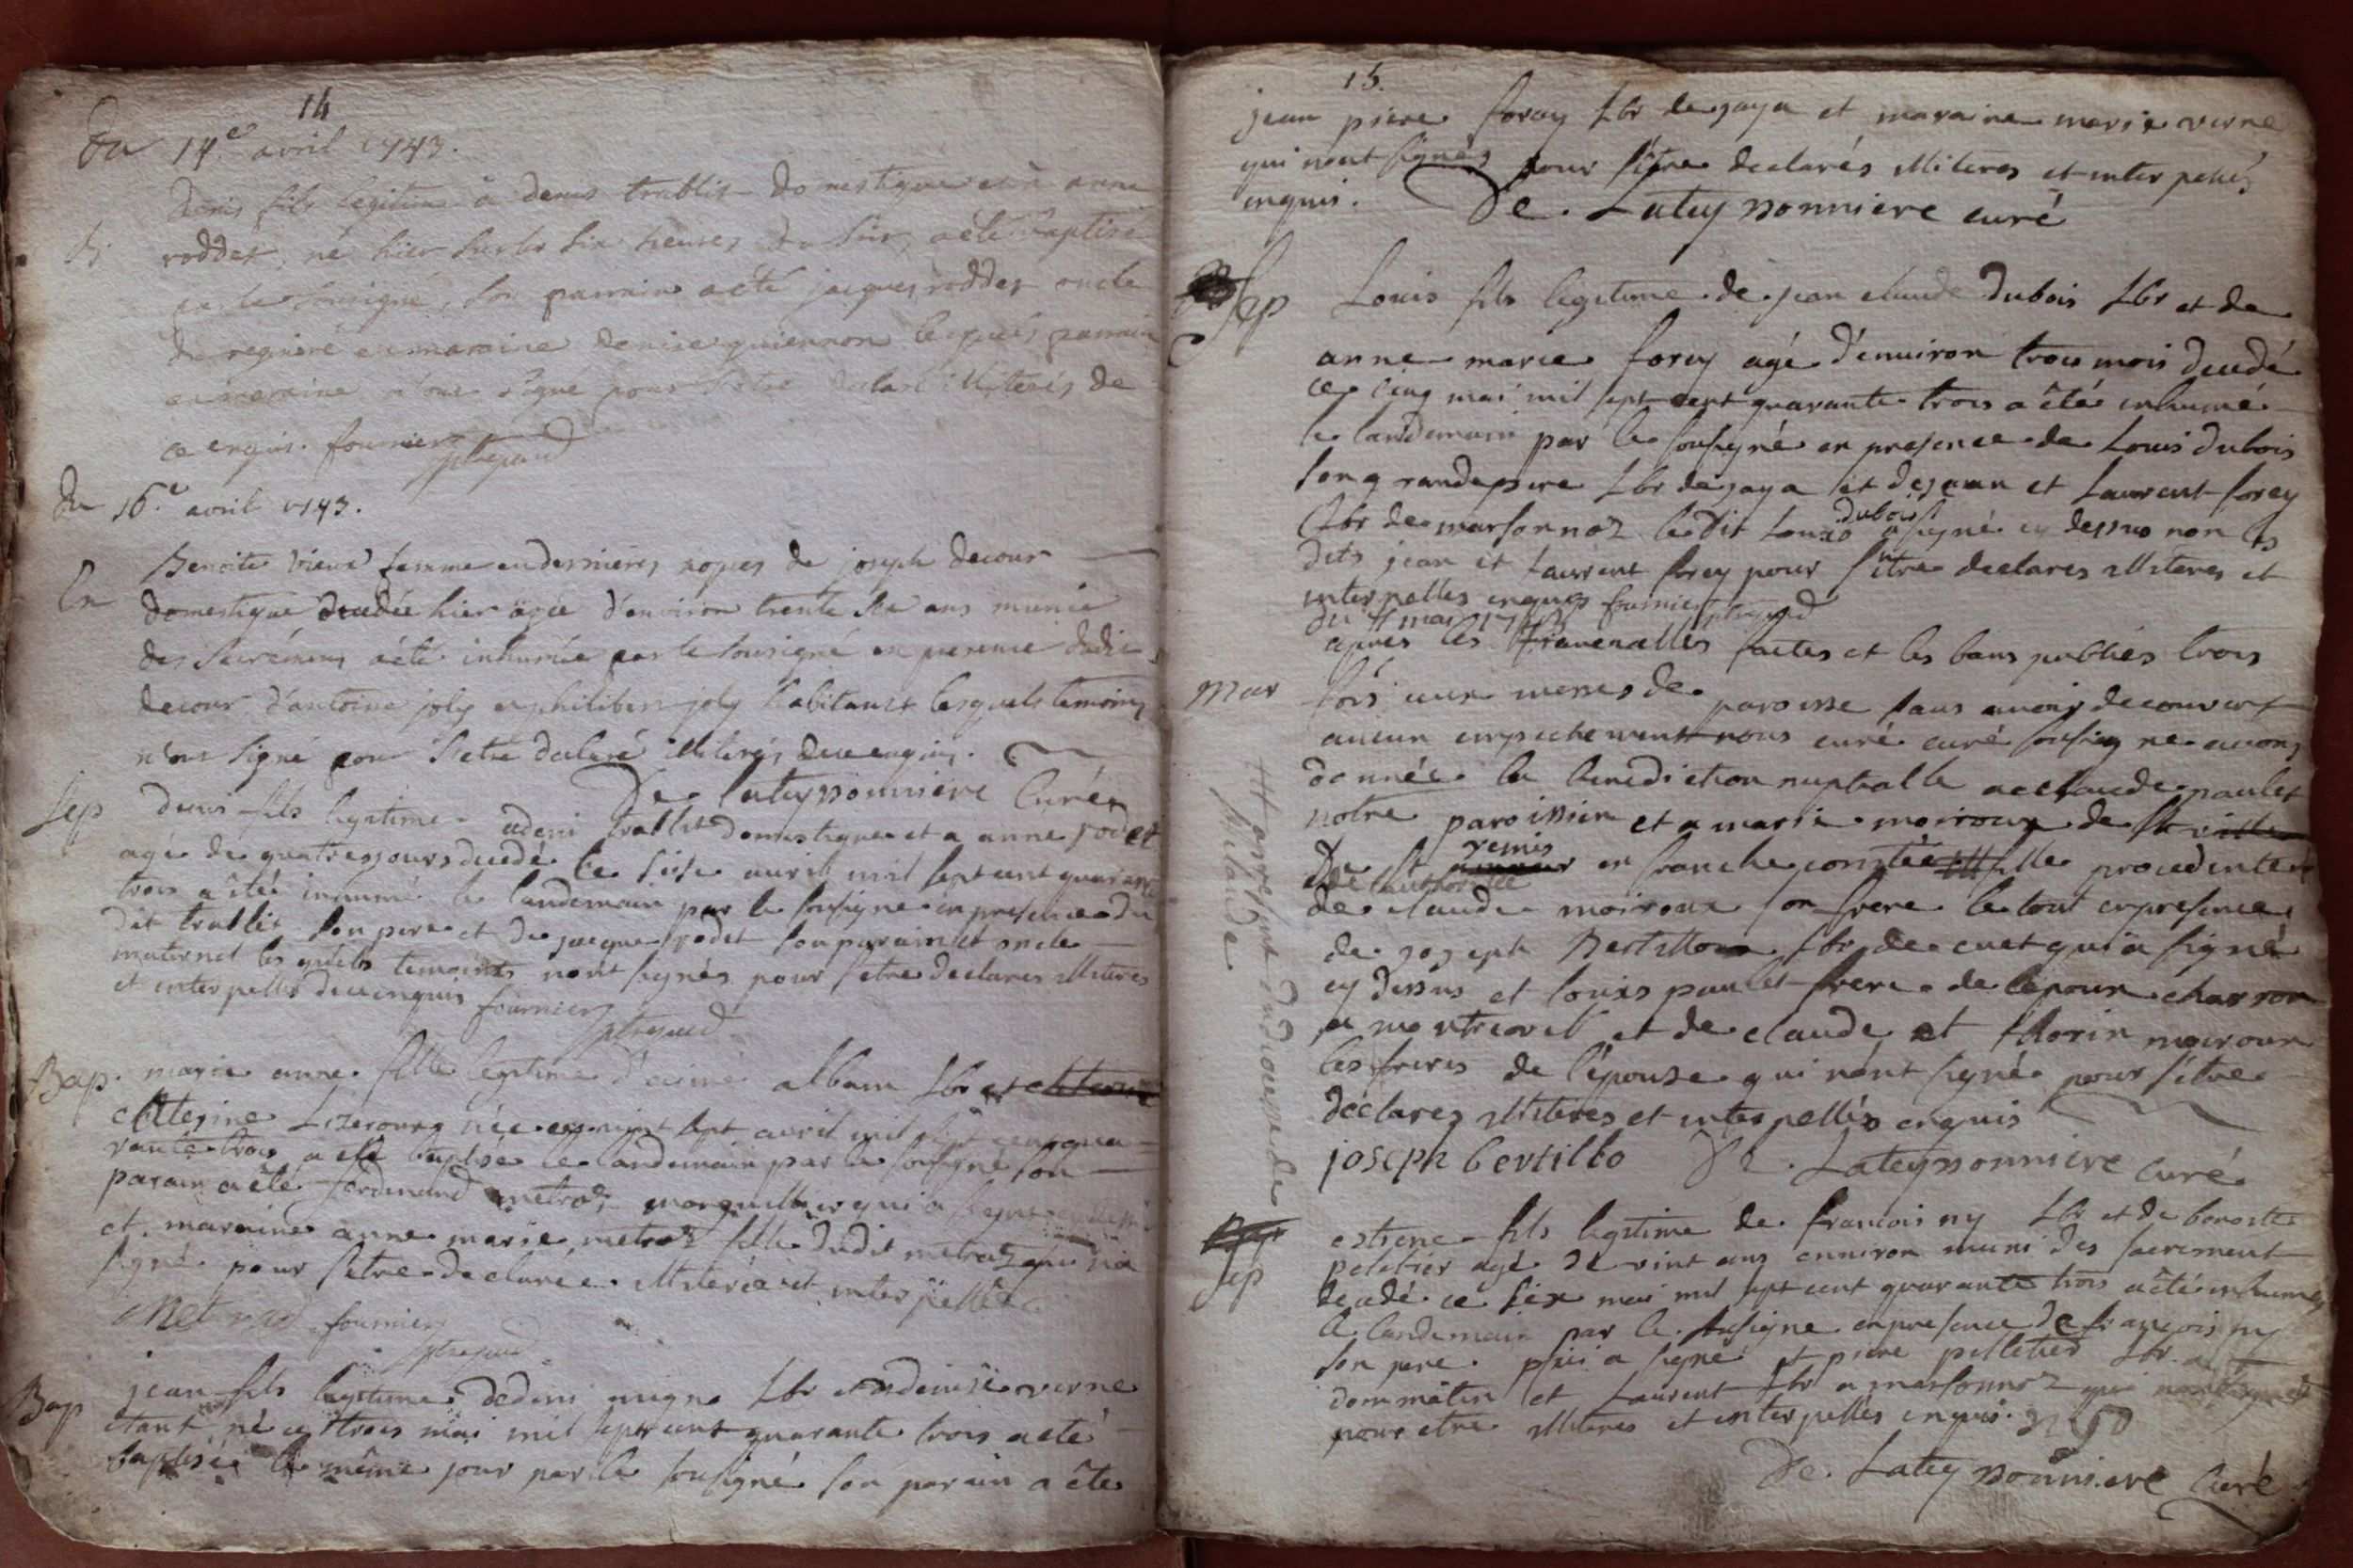 14
Du 14e avril 1743.
Denis fils legitime à denis trablit domestique et à anne
B. roddet né hier sur les six heures du soir, a été baptisé
par le sousigné, son parrain a été jacques roddet oncle
et maraine denise guiennon lesquels parrain
et maraine n'ont signé pour s'etre declaré illiterés de
ce enquis. fournier
Du 16e avril 1743.
Benoite vieux femme en dernieres nopces de joseph decour
En domestique decedée hier agée d'environ trente six ans munie
des sacremens a été inhumée par le sousigné en presence dudit
decour d'antoine joly et philibert joly habitants lesquels temoins
n'ont signé pour s'etre declaré illiterés de ce enquis.
De lateyssonniere Curé
Sep denis fils legitime a denis trablit domestique et a anne rodet
agé de quatres jours decedé le seise avril mil sept cent quarante
trois a êtée inhumé le landemain par le sousigne en presence du
dit trablit son pere et de jacque rodet son parain et oncle
maternel les quels temoints nont signés pour setre declares illiteres
et interpellés de ce enquis fournier
Bap. marie anne fille legitime d'aimé albam Lbr et
née ce vint sept avril mil sept cent qua-
rante trois a eté baptisé le landemain par le sousigné son
parain a êté ferdinand metraz marguillier qui a signé
et maraine anne marie metraz fille dudit metraz qui n'a
signé pour s'etre declarée illiterée et interpellée
Metraz fournier
Bap jean fils legitime de denis Lbr et a denise verne
étant né ce trois mai mil sept cent quarante trois a eté
baptisé le même jour par le sousigné son parain a ête
15.
jean piere foray Lbr de jaya et maraine marie verne
qui nont signés pour s'être declarés illiteres et interpellés
enquis. De. Lateyssonniere curé
Sep Louis fils legitime de jean claude Dubois Lbr et de
anne marie forey agé d'environ trois mois decedé
ce cinq mai mil sept cent quarante trois a êté inhumé
le landemain par le sousigné en presence de Louis dubois
son grandepere Lbr de jaya et de jean et Laurent forey
Lbr de marsonnoz le dit Louis dubois a signé cy dessus non les
dits jean et Laurent forey pour s'être declares illiteres et
interpelles enquis fournier
du mai 1743
après les fiancialles faites et les bans publiés trois
mar fois aux messes de paroisse sans avoir decouvert
aucun empechement nous curé curé sousigne avons
donnée la benediction nuptialle a claude paulet
notre paroissien et a marie moiroux de
De St remis en franche comtée fille procedente
de l'authoritée
de claude moiroux son frere le tout en presence
de joseph Bertillon Lbr de cuet qui a signé
cy dessus et Louis paulet frere de l'epoux charron
a montrevel et de claude et florin moiroux
les freres de l'épouse qui nont signé pour s'etre
déclarez illiteres et interpellés enquis
joseph bertillo De. Lateyssonniere curé
Sep estiene fils legitime de francois ny Lbr et de benoite
peletier agé de vint ans environ muni des sacrement
decedé ce six mai mil sept cent quarante trois a êté inhumé
le landemain par le sousigne en presence de françois ny
son pere a signé et piere pelletier Lbr a
dommâtin et Laurent Lbr a marsonnoz qui
pour etre illiteres et interpellés enquis. ny
De. Lateyssonniere Curé